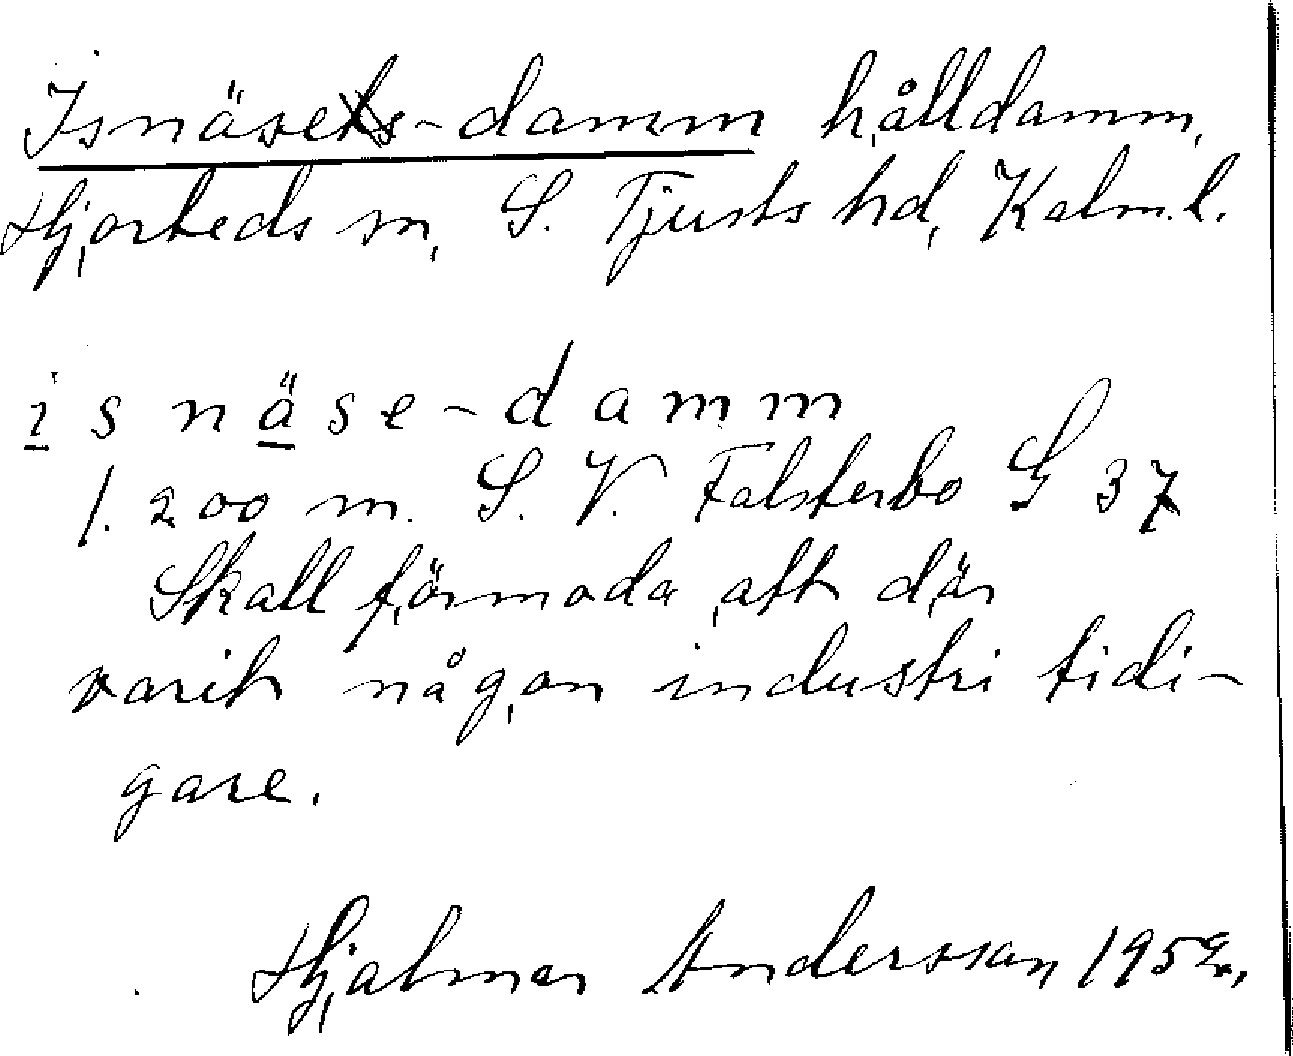 Isnäse-damm hålldamm,
Hjorteds sn, S. Tjusts hd, Kalm. l.
i s n ä s e - d a m m
1. 200 m. S. V. Falsterbo G 37
Skall förmoda att där
varit någon industri tidi-
gare.
Hjalmar Andersson 1952.